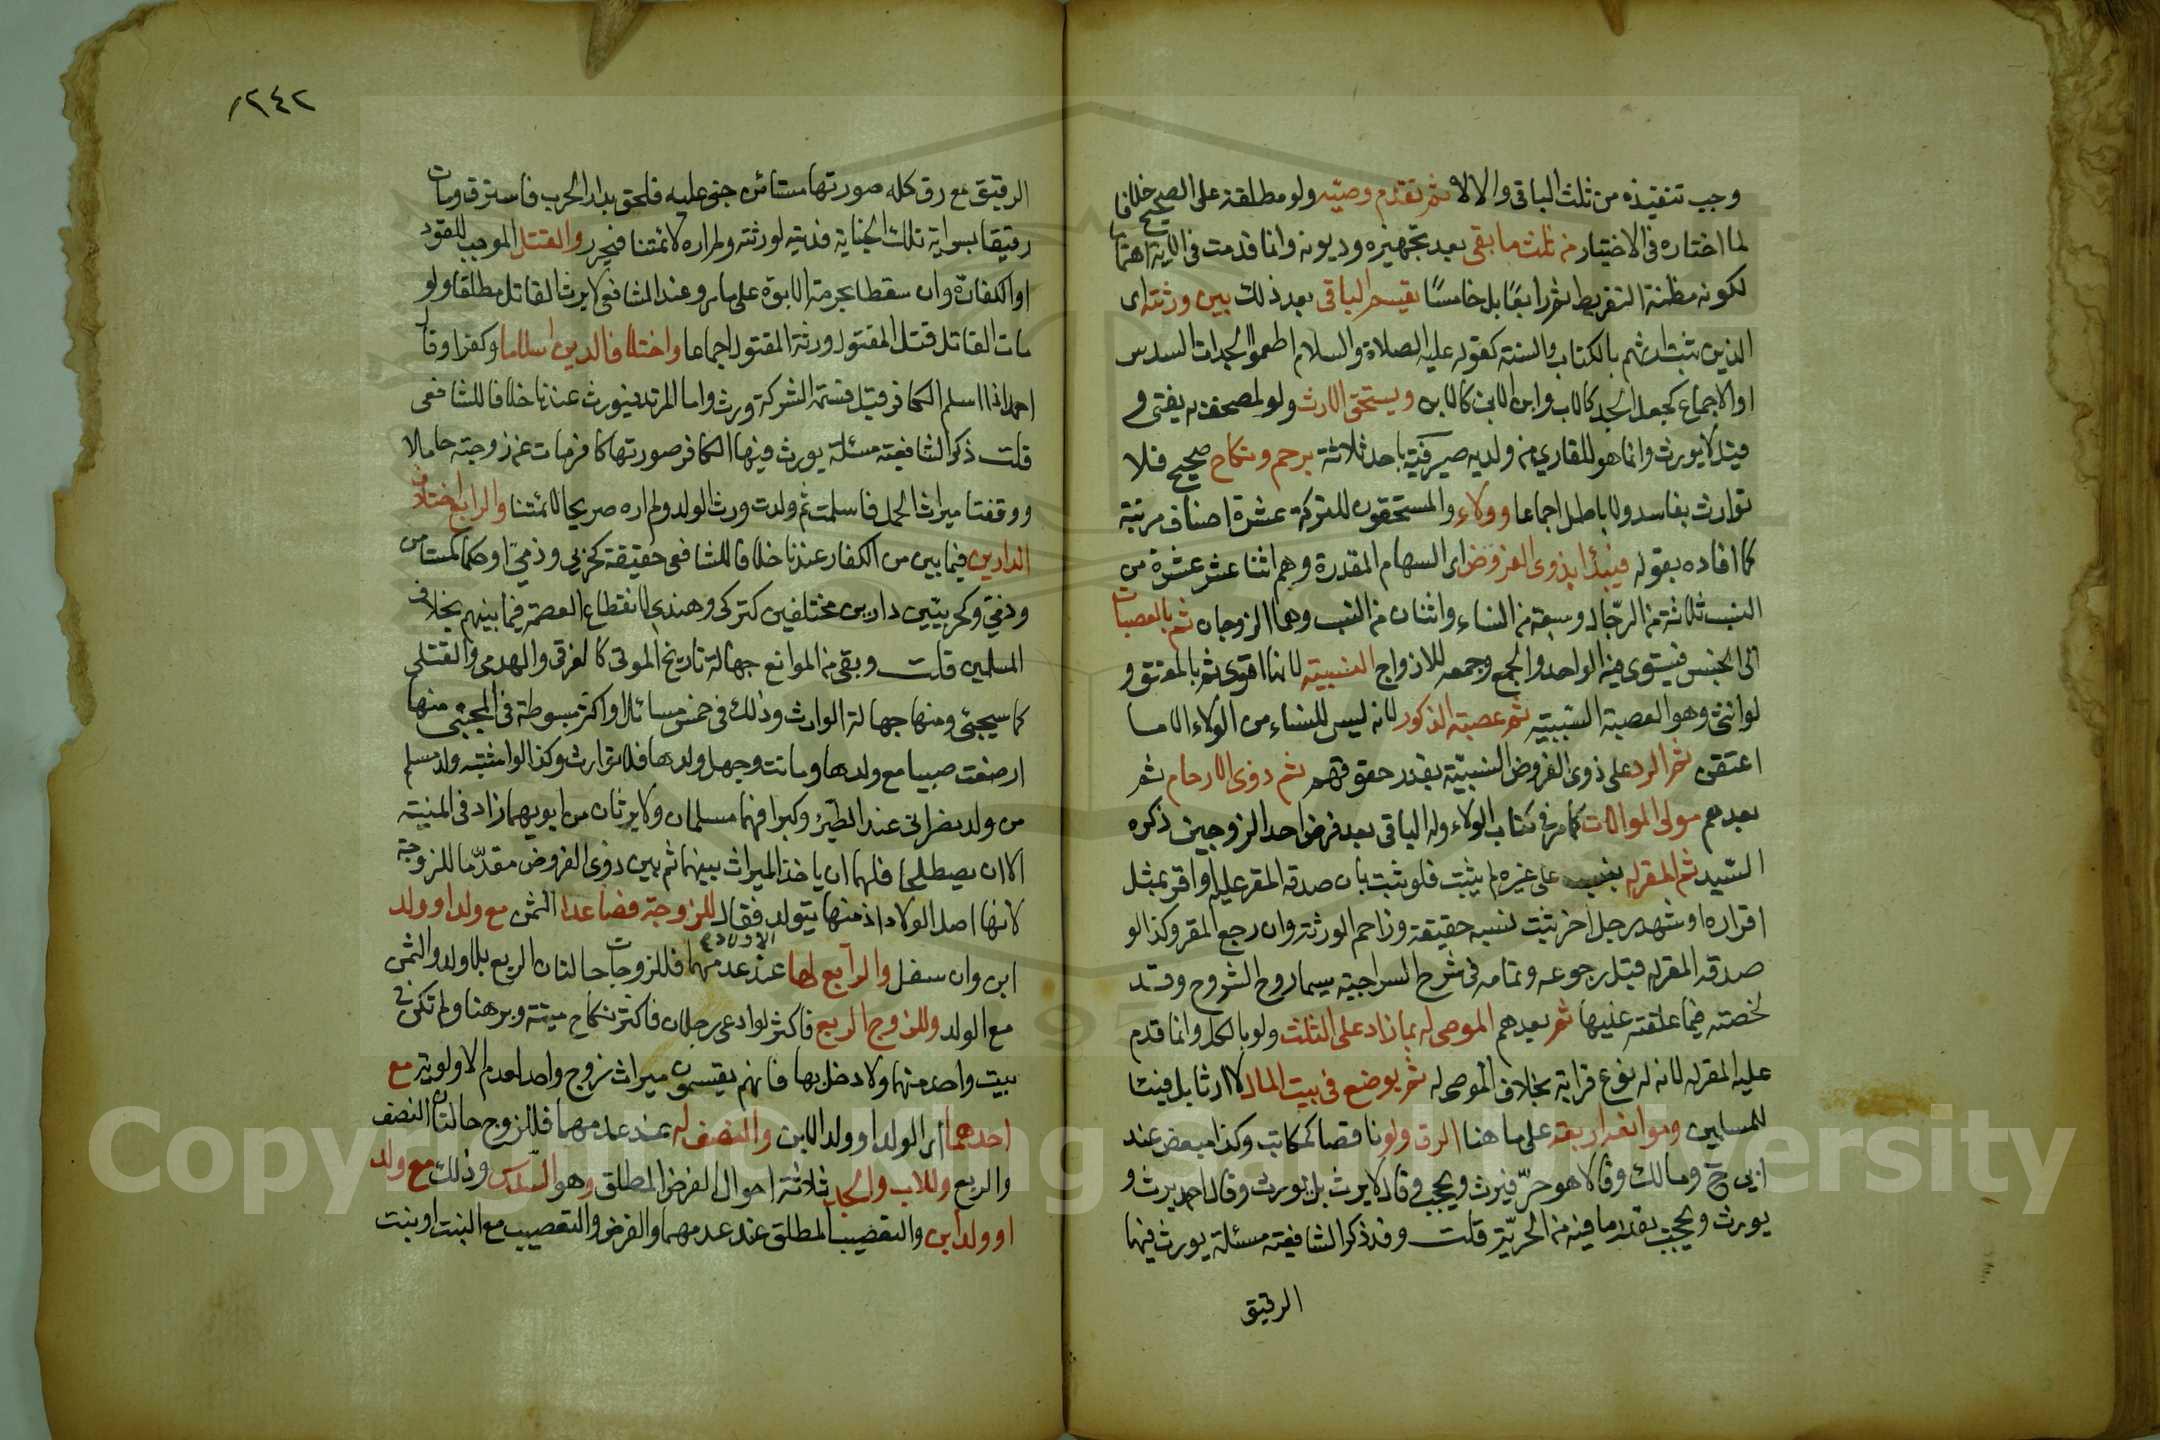 وجب تنفيذه من ثلث الباقي والا لا ثم تقدم وصيته ولو مطلقة على الصحيح خلافا
لما اختاره في الاختيار من ثلث ما بقي بعد تجهيزه وديونه وانما قدمت في الاية اهتماما
لكونه مظنة التفريط ثم رابعا بل خامسا يقسم الباقي بعد ذلك بين ورثته اى
الذين ثبت ارثهم بالكتاب والسنة كقوله عليه الصلاة والسلام اطعموا الجدات السدس
او الاجماع كجعل الجد كالاب وابن الابن كالابن ويستحق الارث ولو لمصحف به يفتى و
قيل لا يورث وانما هو للقاري من ولديه صيرفية باحد ثلاثة برحم ونكاح صحيح فلا
توارث بفاسد ولا باطل اجماعا وولاء والمستحقون للتركة عشرة اصناف مرتبة
كما افاده بقوله فيبدا بذوى الفروض اى السهام المقدرة وهم اثنا عشر عشرة من
النسب ثلاثة من الرجال وسبعة من النساء واثنان من التسب وهما الزوجان ثم بالعصبات
ال للجنس فيستوى فيه الواحد والجمع وجمعه للازدواج النسبية لانها اقوى ثم بالمعتق و
لو انثى وهو العصبة السببية ثم عصبته الذكور لانه ليس للنساء من الولاء الا ما
اعتقن ثم الرد على ذوى الفروض النسبية بقدر حقوقهم ثم ذوى الارحام ثم
بعدهم مولى الموالات كما مر في كتاب الولاء وله الباقي بعد فرض احد الزوجين ذكره
السيد ثم المقر له بنسب على غيره لم يثبت فلو ثبت بان صدقه المقر عليه او اقر بمثل
اقراره او شهد رجل اخر ثبت نسبه حقيقة وزاحم الورثة وان رجع المقر وكذا لو
صدقه المقر له قبل رجوعه وتمامه في شرح السراجية سيما روح الشروح وقد
لخصته فيما علقته عليها ثم بعدهم الموصى له بما زاد على الثلث ولو بالكل وانما قدم
عليه المقر له لانه له نوع قرابة بخلاف الموصى له ثم يوضع في بيت المال لا ارثا بل فيئا
للمسلمين وموانعه اربعة على ما هنا الرق ولو ناقصا كمكاتب وكذا مبعض عند
ابي ح ومالك وقالا هو حر فيرث ويحجب وقال لا يرث بل يورث وقال احمد يرث و
يورث ويحجب بقدر ما فيه من الحرية قلت وقد ذكر الشافعية مسئلة يورث فيها
الرقيق
٢٤٢
الرقيق مع رق كله صورتها مستامن جنى عليه فلحق بدار الحرب فاسترق ومات
رقيقا بسراية تلك الجناية فديته لورثته ولم اره لائمتنا فيحرر والقتل الموجب للقود
او الكفارة وان سقطا بحرمة الابوة على ما مر وعند الشافعي لا يرث القاتل مطلقا ولو
مات القاتل قبل المقتول ورثه المقتول اجماعا واختلاف الدين اسلاما وكفرا وقال
احمد اذا اسلم الكافر قبل قسمة التركة ورث واما المرتد فيورث عندنا خلافا للشافعي
قلت ذكر الشافعية مسئلة يورث فيها الكافر صورتها كافر مات عن زوجته حاملا
ووقفنا ميراث الحمل فاسلمت ثم ولدت ورث الولد ولم اره صريحا لائمتنا والرابع اختلاف
الدارين فيما بين من الكفار عندنا خلافا للشافعي حقيقة كحربي وذمي او حكما كمستامن
وذمي وكحربيين دارين مختلفين كتركي وهندي لانقطاع العصمة فيما بينهم بخلاف
المسلمين قلت وبقي من الموانع جهالة تاريخ الموتى كالغرقى والهدمى والقتلى
كما سيجئ ومنها جهالة الوارث وذلك في خمس مسائل او اكثر مبسوطة في المجتبى منها
ارضعت صبيا مع ولدها وماتت وجهل ولدها فلا توارث وكذا لو اشتبه ولد مسلم
من ولد نصراني عند الظئر وكبرا فهما مسلمان ولا يرثان من ابويهما زاد في المنية
الا ان يصطلحا فلهما ان ياخذا الميراث بينهما ثم بين ذوى الفروض مقدما للزوجة
لانها اصل الولاد اذ منها يتولد فقال للزوجة فصاعدا الثمن مع ولد او ولد
ابن وان سفل والرابع لها عند عدمهما فللزوجات حالتان الربع بلا ولد والثمن
مع الولد وللزوج الربع فاكثر لو ادعى رجلان فاكثر نكاح ميتة وبرهنا ولم تكن في
بيت واحد منهما ولا دخل بها فانهم يقتسمون ميراث زوج واحد لعدم الاولوية مع
احدهما اى الولد او ولد الابن والنصف له عند عدمهما فللزوج حالتان النصف
والربع وللاب والجد ثلاثة احوال الفرض المطلق وهو السدس وذلك مع ولد
او ولد ابن والتعصيب المطلق عند عدمهما والفرض والتعصيب مع البنت او بنت
Copyright © King Saud University